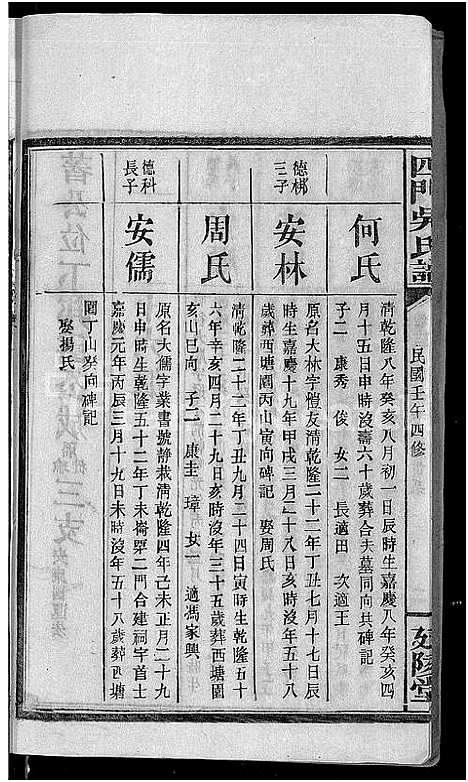 四門吳氏譜
民國壬午四修
延陵堂
何氏
清乾隆八年癸亥八月初一日辰時生嘉慶八年癸亥四
月十五日申時沒壽六十歲葬合夫墓同向共碑記
子二 康秀 俊 女二 長適田 次適王
德梯
三子
安林
原名大林字愷友清乾隆二十二年丁丑七月十七日辰
時生嘉慶十九年甲戌三月二十八日亥時沒年五十八
歲葬西塘園丙山寅向碑記 娶周氏
周氏
清乾隆二十二年丁丑九月二十四日寅時生乾隆五十
六年辛亥四月二十九日亥時沒年三十五歲葬西塘園
亥山巳向 子二 康圭 璋 女一 適馮家興
德科
長子
安儒
原名大儒字業書號靜栽清乾隆四年己未正月二十九
日申時生乾隆五十二年丁未崙壂二門合建祠宇首士
嘉慶元年丙辰三月十九日未時沒年五十八歲葬西塘
園丁山癸向碑記
娶楊氏